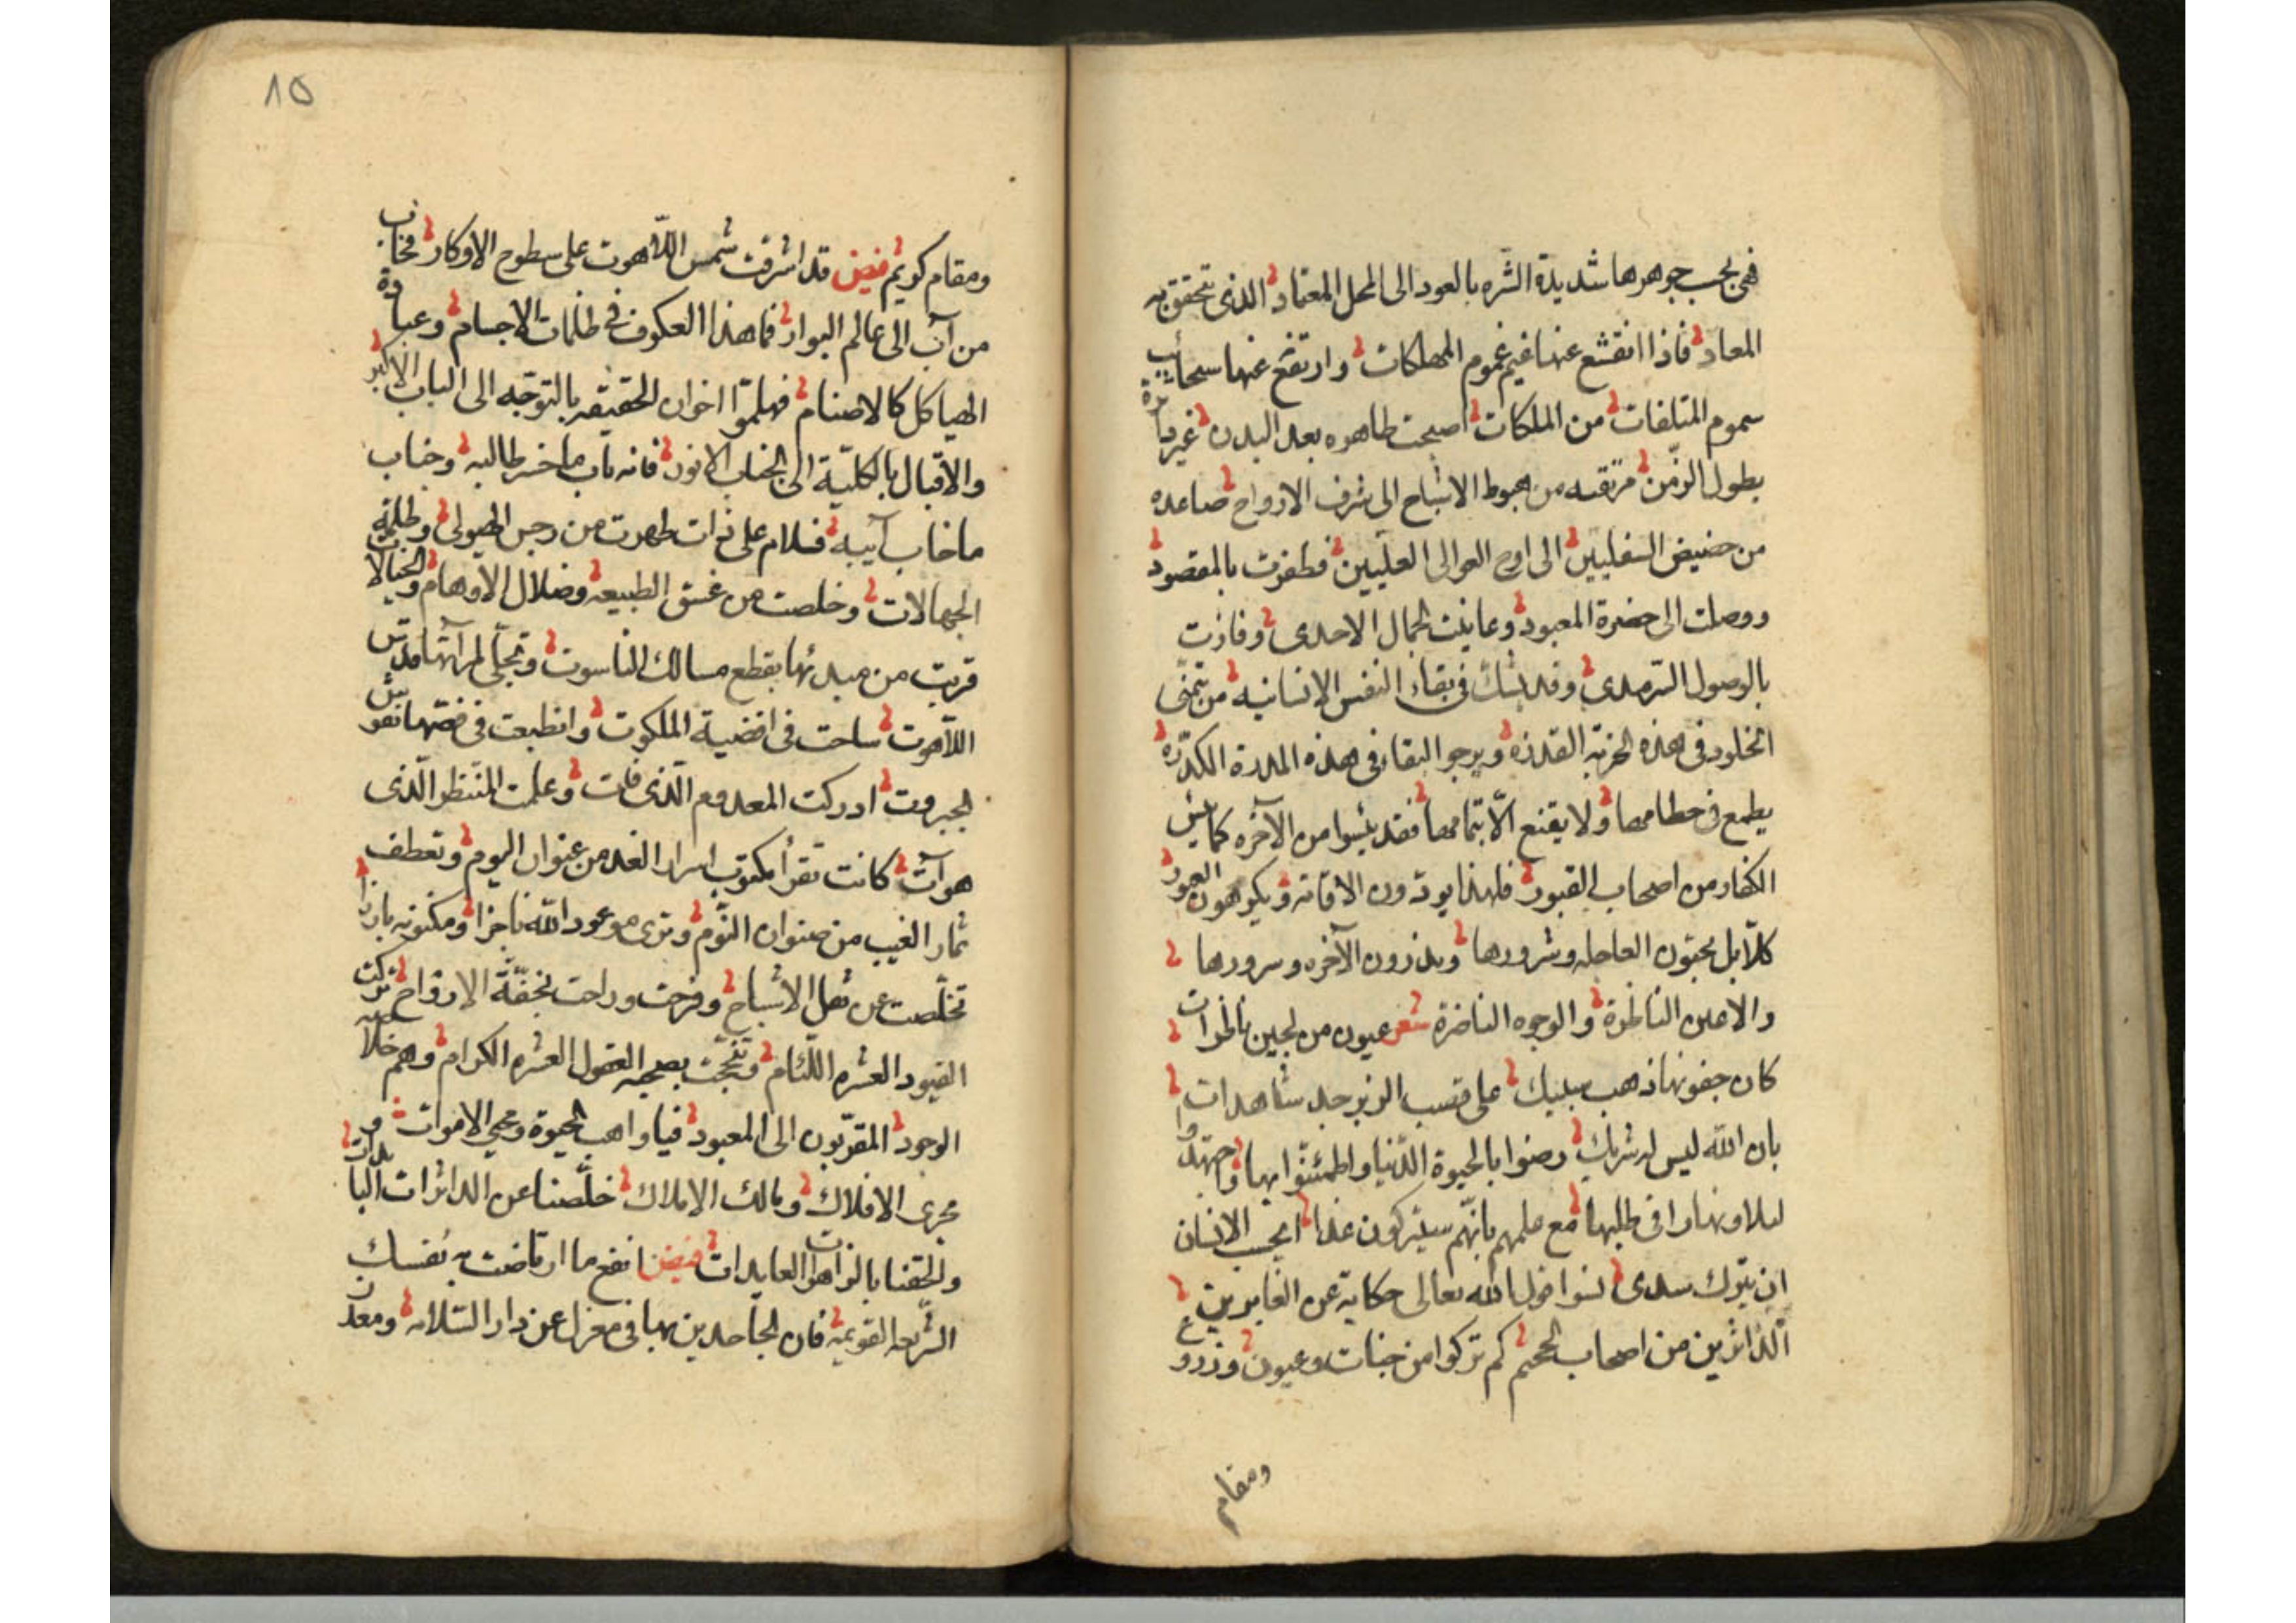 فهى بحسب جوهرها شديدة الشره بالعود الى المحل المعتاد الذى تتحقق به
المعاد فاذا انقشع عنها غيم غموم المهلكات وارتفع عنها سحائب
سموم المتلفات من الملكات اصبحت طاهره بعد البدن غير
بطول الزمن مرتقيه من هبوط الاشباح الى شرف الارواح صاعده
من حضيض السفليين الى اوج العوالى العليين فظفرت بالمقصود
ووصلت الى حضرة المعبود وعاينت الجمال الاحدى وفازت
بالوصول السرمدى وقد يشك فى بقاء النفس الانسانيه من يتمنى
الخلود فى هذه الخربة القذره ويرجو البقاء فى هذه المدرة الكدره
يطمع فى حطامها ولا يقنع الا بتمامها فقد يئسوا من الآخره كما يئس
الكفار من اصحاب القبور فلهذا يودون الاقامة ويكرهون العبور
كلا بل يحبون العاجله وشرورها ويذرون الآخره وسرورها
والاعين الناظرة والوجوه الناضرة شعر عيون من لجين ناظرات
كان جفونها ذهب سبيك على قصب الزبرجد شاهدات
بان الله ليس له شريك رضوا بالحيوة الدنيا واطمئنوا بها واجتهدوا
ليلا ونهارا فى طلبها مع علمهم بانهم سيتركون غدا ايحسب الانسان
ان يترك سدى نسوا قول الله تعالى حكاية عن الغابرين
الداثرين من اصحاب الجحيم كم تركوا من جنات وعيون وزروع
ومقام
١٥
ومقام كريم فيض قد اشرقت شمس اللاهوت على سطوح الاوكار فخاب
من آب الى عالم البوار فما هذا العكوف فى ظلمات الاجسام وعبادة
الهياكل كالاصنام فهلموا اخوان الحقيقه بالتوجه الى الباب الاكبر
والاقبال بالكلية الى الجناب الانور فانه باب ما خسر طالبه وجناب
ما خاب آيبه فسلام على ذات طهرت من رجس الهيولى وظلمة
الجهالات وخلصت من غسق الطبيعه وضلال الاوهام والخيالات
قربت من مبدئها بقطع مسالك الناسوت وتجلى لمرآتها قدس
اللاهوت ساحت فى افضية الملكوت وانطبعت فى فصها نقوش
الجبروت ادركت المعدوم الذى فات وعلمت المنتظر الذى
هو آت كانت تقرأ مكتوب اسرار الغد من عنوان اليوم وتعطف
ثمار الغيب من صنوان النوم وترى موعود الله ناجزا ومكنونه بارزا
تخلصت عن ثقل الاشباح وفرحت وراحت بخفة الارواح تركت
القيود العشره اللئام بصحبة العقول العشره الكرام وهم خلاصة
الوجود المقربون الى المعبود فيا واهب الحيوة ومحيى الاموات و
مجرى الافلاك ومالك الاملاك خلصنا عن الداثرات البائدات
والحقنا بالزاهرات العابدات فيض انفع ما ارتاضت به نفسك
الشريعه القويمة فان الجاحدين بها فى معزل عن دار السلامه ومعدن